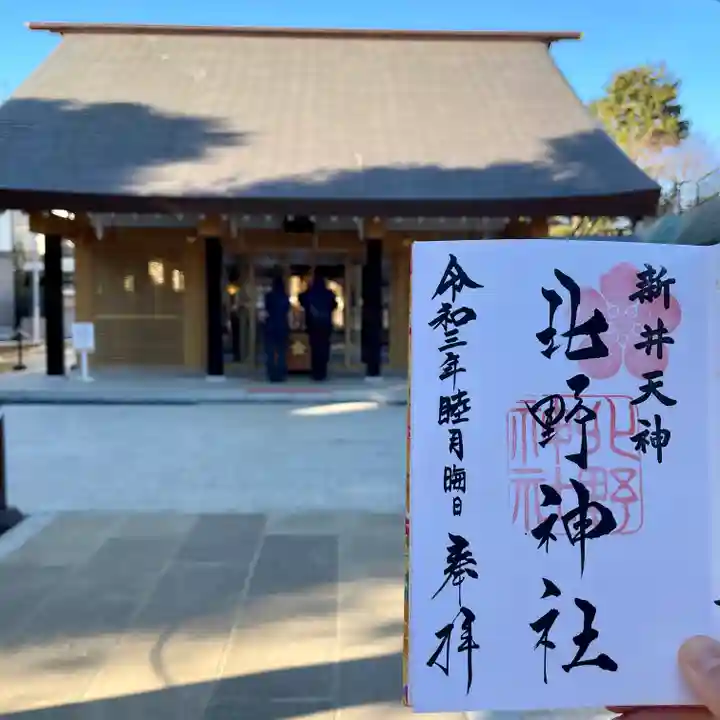 新井天神
北野神社
北野
神社
令和三年睦月晦日
奉拝